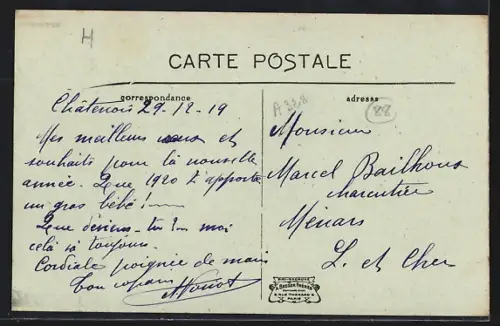 H
CARTE POSTALE
correspondance
adresse
A 328
22
Châtenois 29-12-19
Mes meilleurs vœux et
souhaits pour la nouvelle
année. Que 1920 t'apporte
un gros bébé!
Que deviens-tu? moi
cela va toujours.
Cordiale poignée de main
Ton copain
Monsieur
Marcel Bailhous
charcutier
Ménars
L. et Cher
PARIS